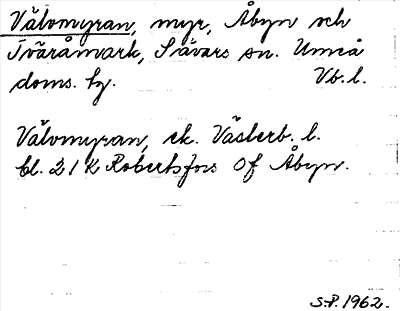 Välvomyran, myr, Åbyn och
Tväråmark, Sävars sn. Umeå
doms. hg. Vb. l.
Välvomyran, ek. Västerb. l.
bl. 21 K Robertsfors Of Åbyn.
S-P. 1962.